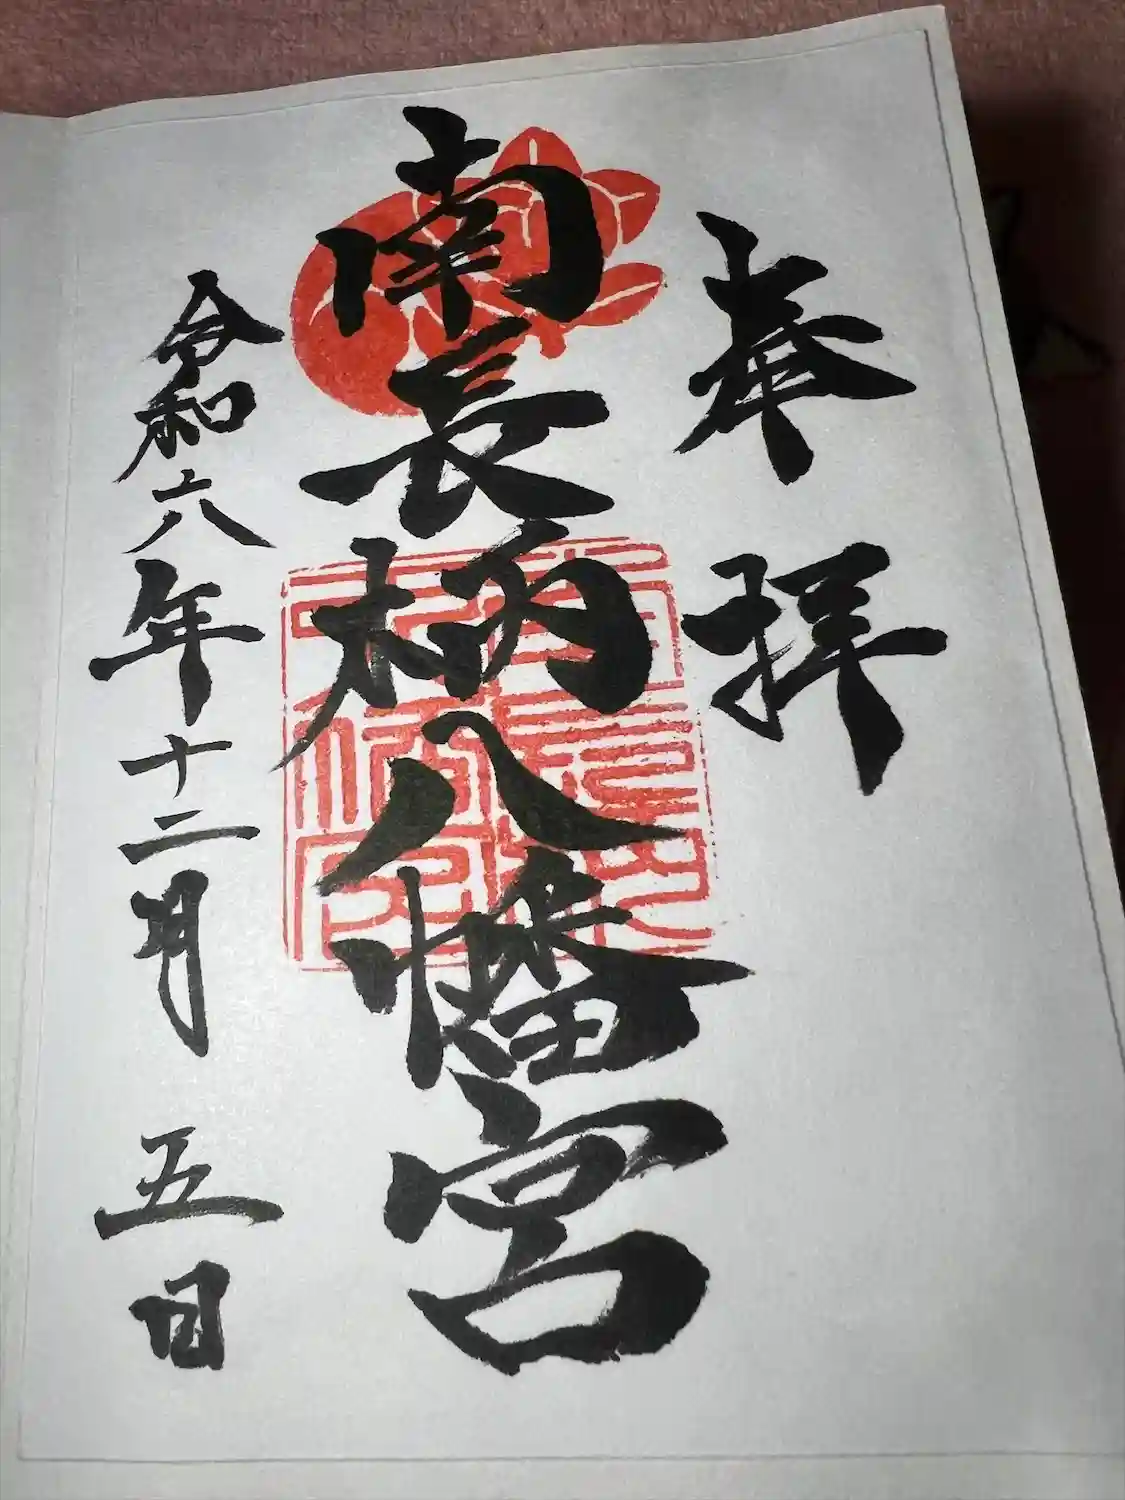 奉拝
南長柄八幡宮
令和六年十二月五日